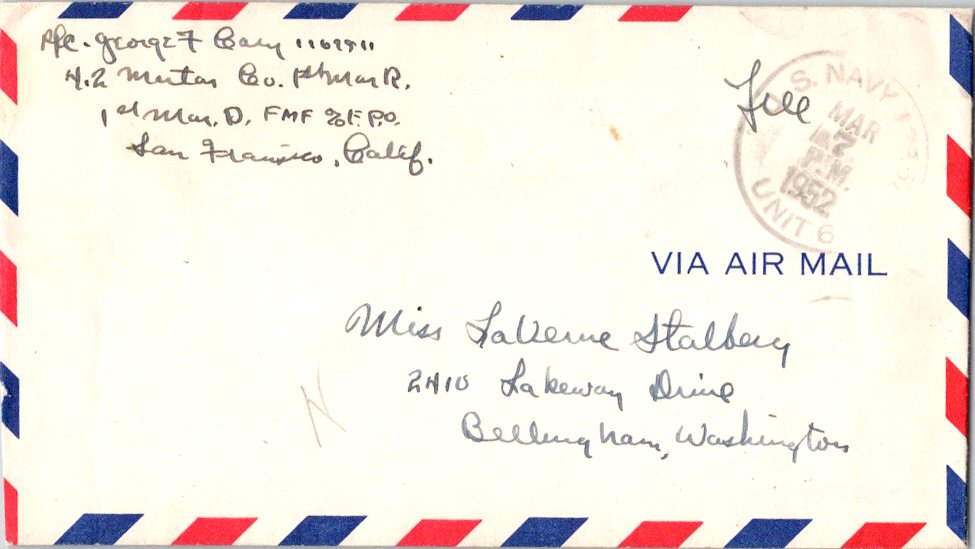 Pfc. George F Cary 1169911
4.2 Mortar Co. 1st Mar R.
1st Mar. D. FMF % F.P.O.
San Francisco, Calif.
Free
U.S. NAVY
MAR
P.M.
1952
UNIT 6
VIA AIR MAIL
Miss LaVerne Stalberg
2410 Lakeway Drive
Bellingham, Washington
N